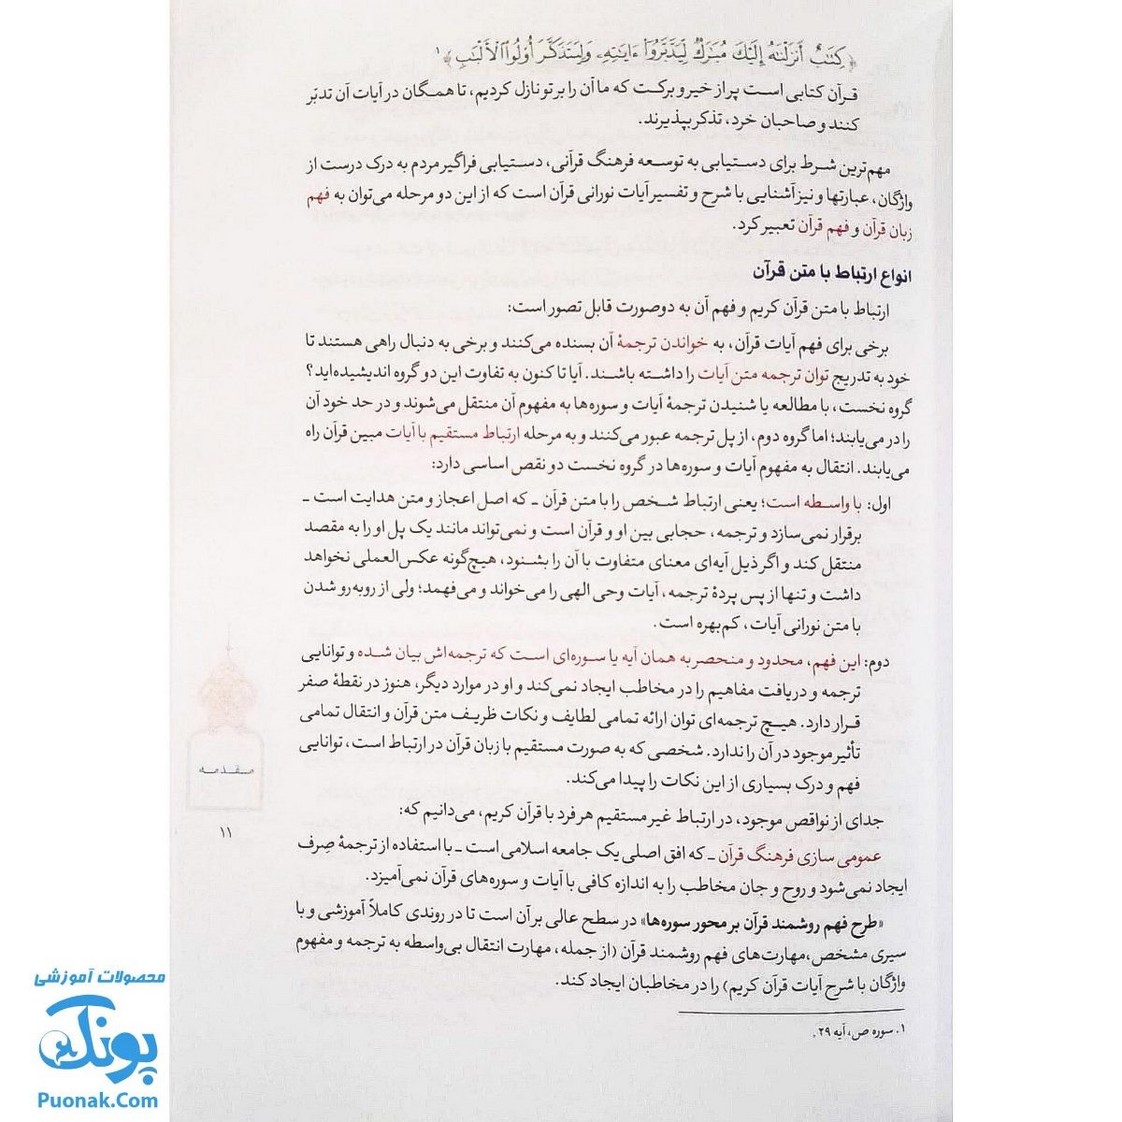 ﴿كِتَٰبٌ أَنزَلْنَٰهُ إِلَيْكَ مُبَٰرَكٌ لِّيَدَّبَّرُوٓا۟ ءَايَٰتِهِۦ وَلِيَتَذَكَّرَ أُو۟لُوا۟ ٱلْأَلْبَٰبِ﴾۱
قرآن کتابی است پر از خیر و برکت که ما آن را بر تو نازل کردیم، تا همگان در آیات آن تدبّر
کنند و صاحبان خرد، تذکر بپذیرند.
مهم‌ترین شرط برای دستیابی به توسعه فرهنگ قرآنی، دستیابی فراگیر مردم به درک درست از
واژگان، عبارتها و نیز آشنایی با شرح و تفسیر آیات نورانی قرآن است که از این دو مرحله می‌توان به فهم
زبان قرآن و فهم قرآن تعبیر کرد.
انواع ارتباط با متن قرآن
ارتباط با متن قرآن کریم و فهم آن به دوصورت قابل تصور است:
برخی برای فهم آیات قرآن، به خواندن ترجمهٔ آن بسنده می‌کنند و برخی به دنبال راهی هستند تا
خود به تدریج توان ترجمه متن آیات را داشته باشند. آیا تا کنون به تفاوت این دو گروه اندیشیده‌اید؟
گروه نخست، با مطالعه یا شنیدن ترجمهٔ آیات و سوره‌ها به مفهوم آن منتقل می‌شوند و در حد خود آن
را در می‌یابند؛ اما گروه دوم، از پل ترجمه عبور می‌کنند و به مرحله ارتباط مستقیم با آیات مبین قرآن راه
می‌یابند. انتقال به مفهوم آیات و سوره‌ها در گروه نخست دو نقص اساسی دارد:
اول: با واسطه است؛ یعنی ارتباط شخص را با متن قرآن ـ که اصل اعجاز و متن هدایت است ـ
برقرار نمی‌سازد و ترجمه، حجابی بین او و قرآن است و نمی‌تواند مانند یک پل او را به مقصد
منتقل کند و اگر ذیل آیه‌ای معنای متفاوت با آن را بشنود، هیچ‌گونه عکس‌العملی نخواهد
داشت و تنها از پس پردهٔ ترجمه، آیات وحی الهی را می‌خواند و می‌فهمد؛ ولی از روبه‌رو شدن
با متن نورانی آیات، کم‌بهره است.
دوم: این فهم، محدود و منحصر به همان آیه یا سوره‌ای است که ترجمه‌اش بیان شده و توانایی
ترجمه و دریافت مفاهیم را در مخاطب ایجاد نمی‌کند و او در موارد دیگر، هنوز در نقطهٔ صفر
قرار دارد. هیچ ترجمه‌ای توان ارائه تمامی لطایف و نکات ظریف متن قرآن و انتقال تمامی
تأثیر موجود در آن را ندارد. شخصی که به صورت مستقیم با زبان قرآن در ارتباط است، توانایی
فهم و درک بسیاری از این نکات را پیدا می‌کند.
جدای از نواقص موجود، در ارتباط غیر مستقیم هر فرد با قرآن کریم، می‌دانیم که:
عمومی سازی فرهنگ قرآن ـ که افق اصلی یک جامعه اسلامی است ـ با استفاده از ترجمهٔ صِرف
ایجاد نمی‌شود و روح و جان مخاطب را به اندازه کافی با آیات و سوره‌های قرآن نمی‌آمیزد.
«طرح فهم روشمند قرآن بر محور سوره‌ها» در سطح عالی بر آن است تا در روندی کاملاً آموزشی و با
سیری مشخص،مهارت‌های فهم روشمند قرآن (از جمله، مهارت انتقال بی‌واسطه به ترجمه و مفهوم
واژگان با شرح آیات قرآن کریم) را در مخاطبان ایجاد کند.
۱. سوره ص، آیه ۲۹.
مقدمه
۱۱
محصولات آموزشی
پونک
Puonak.Com